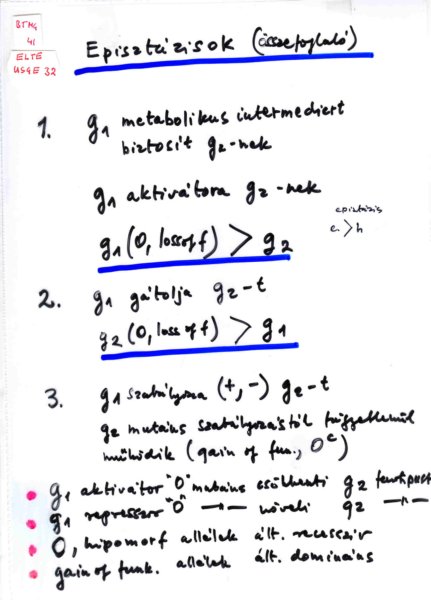 BTMG
41
ELTE
USGE 32
Episztázisok (összefoglaló)
1. g1 metabolikus intermediert
biztosít g2-nek
g1 aktivátora g2-nek
episztázis
e > h
g1 (0, loss of f) > g2
2. g1 gátolja g2-t
g2 (0, loss of f) > g1
3. g1 szabályozza (+, -) g2-t
g2 mutáns szabályozástól függetlenül
működik (gain of fun., O^c)
• g1 aktivátor "0" mutáns csökkenti g2 fenotípust
• g1 represszor "0" —"— növeli g2 —"—
• 0, hipomorf allélek ált. recesszív
• gain of funk. allélek ált. domináns